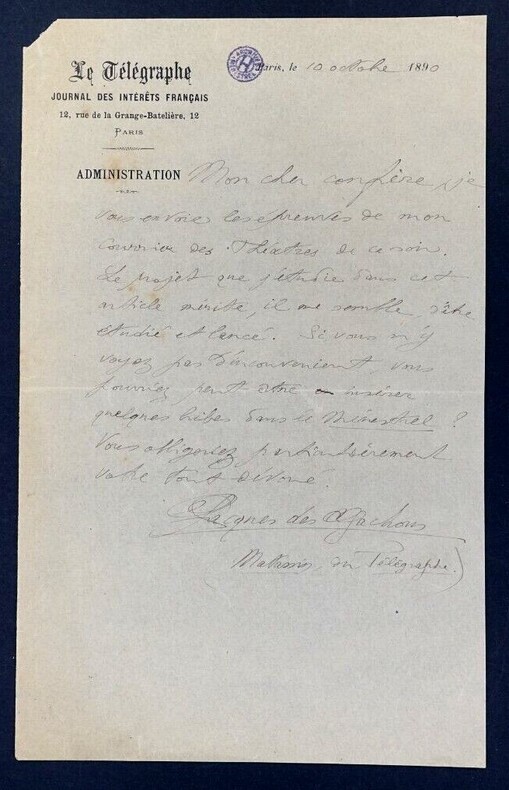 Le Télégraphe
JOURNAL DES INTÉRÊTS FRANÇAIS
12, rue de la Grange-Batelière, 12
PARIS
Paris, le 10 octobre 1890
ADMINISTRATION
Mon cher confrère, je
vous envoie les épreuves de mon
courrier des Théâtres de ce soir.
Le projet que j'étudie dans cet
article mérite, il me semble, d'être
étudié et lancé. Si vous n'y
voyez pas d'inconvénient vous
pourriez peut être insérer
quelques lignes dans le Ménestrel ?
Vous obligeriez particulièrement
votre tout dévoué.
Jacques des Gachons
du Télégraphe)